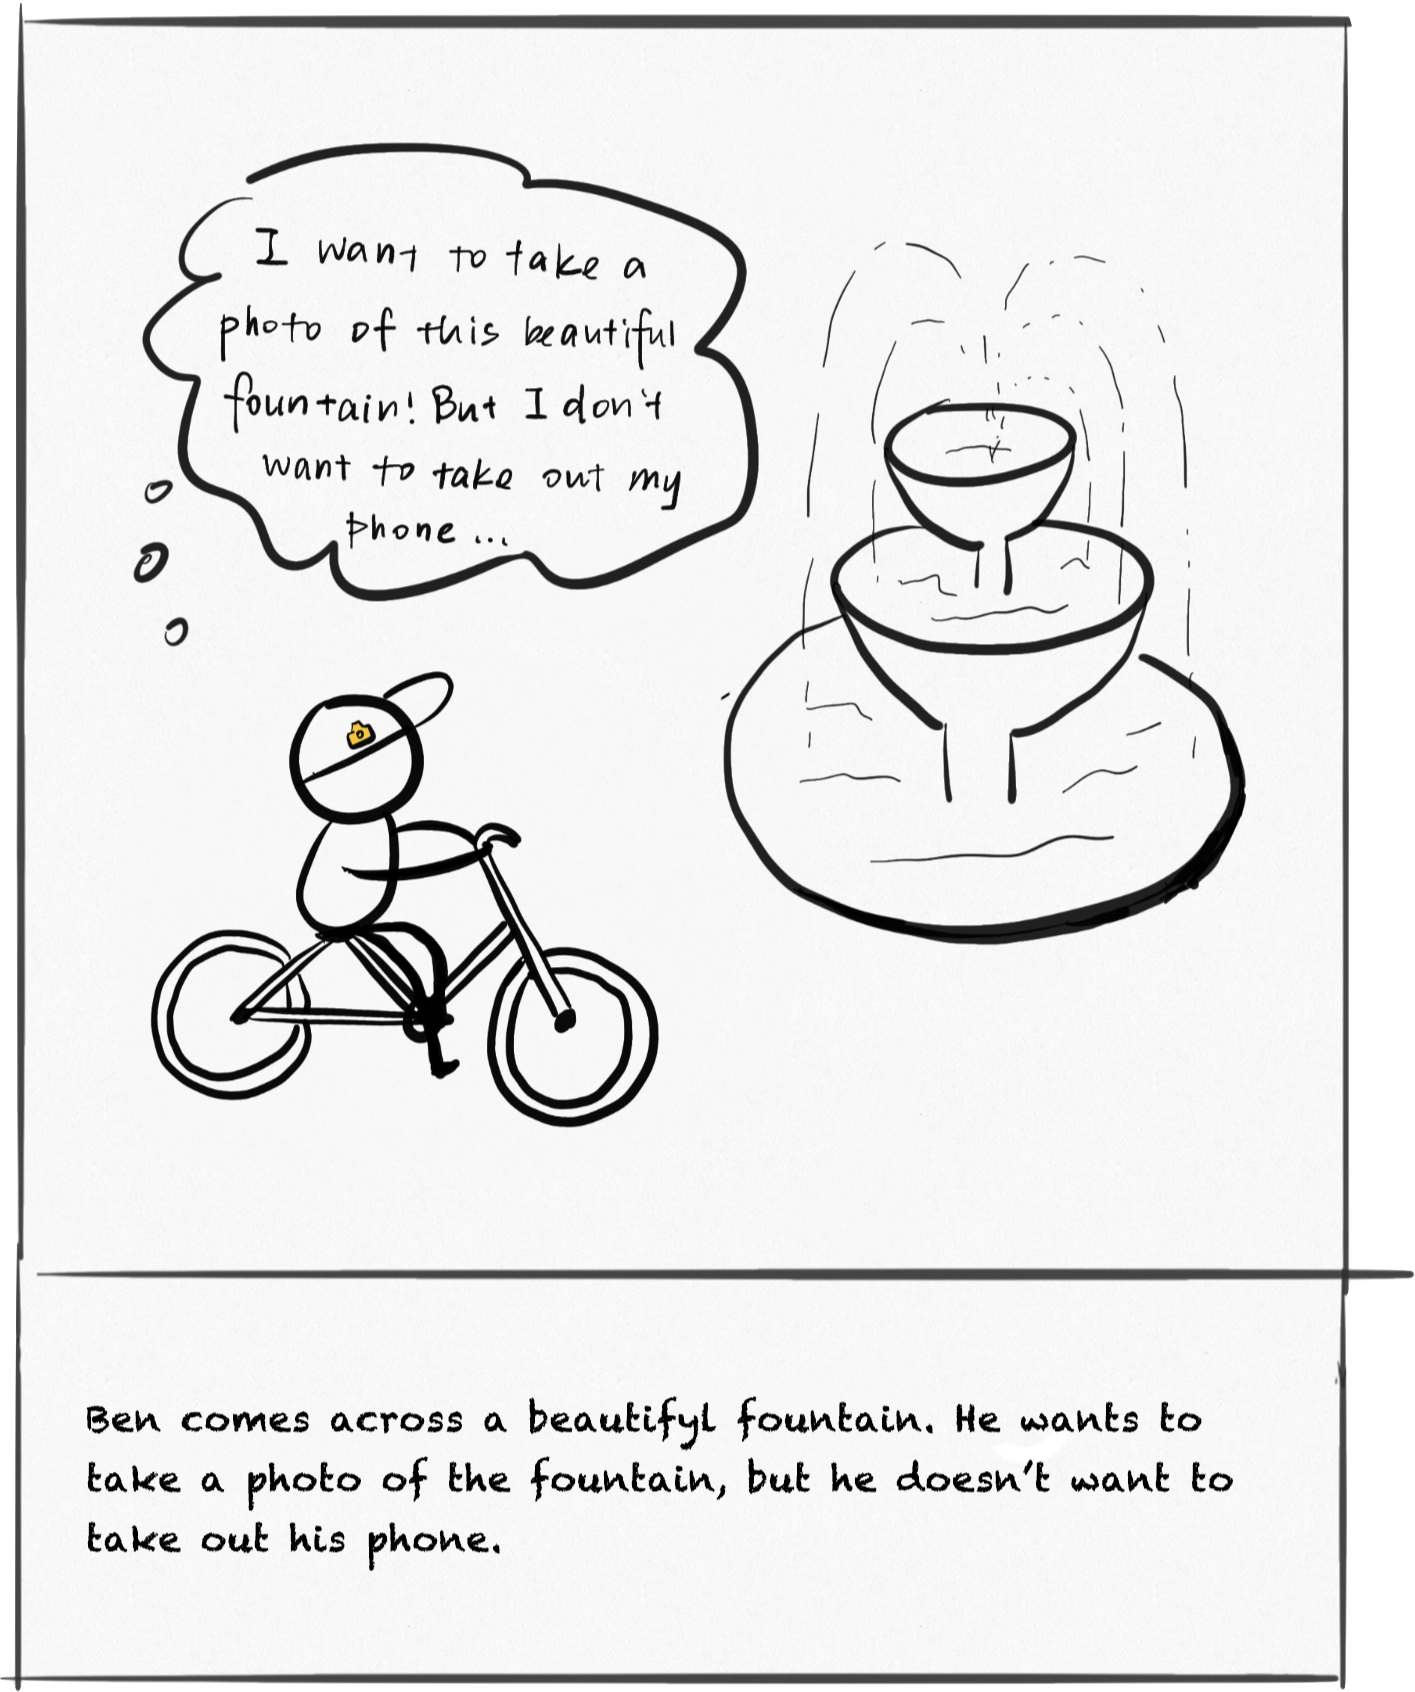 I want to take a
photo of this beautiful
fountain! But I don't
want to take out my
phone...
Ben comes across a beautifyl fountain. He wants to
take a photo of the fountain, but he doesn't want to
take out his phone.